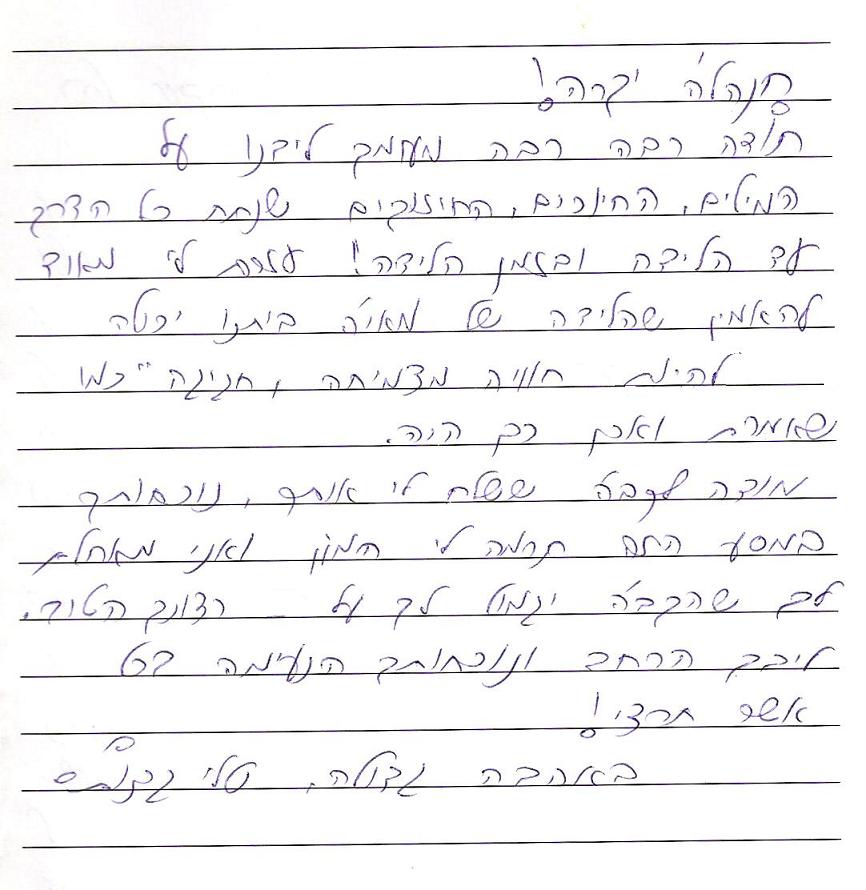 חנהל'ה יקרה!
תודה רבה רבה מעומק ליבנו על
המילים, החיוכים, החיזוקים שנתת כל הדרך
עד הלידה ובזמן הלידה! עזרת לי מאוד
להאמין שהלידה של מאי'ה ביתנו יכולה
להיות חוויה מצמיחה, חגיגה" כמו
שאומרת ואכן כך היה.
מודה לקב"ה ששלח לי אותך, נוכחותך
במסע הזה תרמה לי המון ואני מאחלת
לך שהקב"ה יגמול לך על רצונך הטוב,
ליבך הרחב ונוכחותך הנעימה בכל
אשר תרצי!
באהבה גדולה, טלי